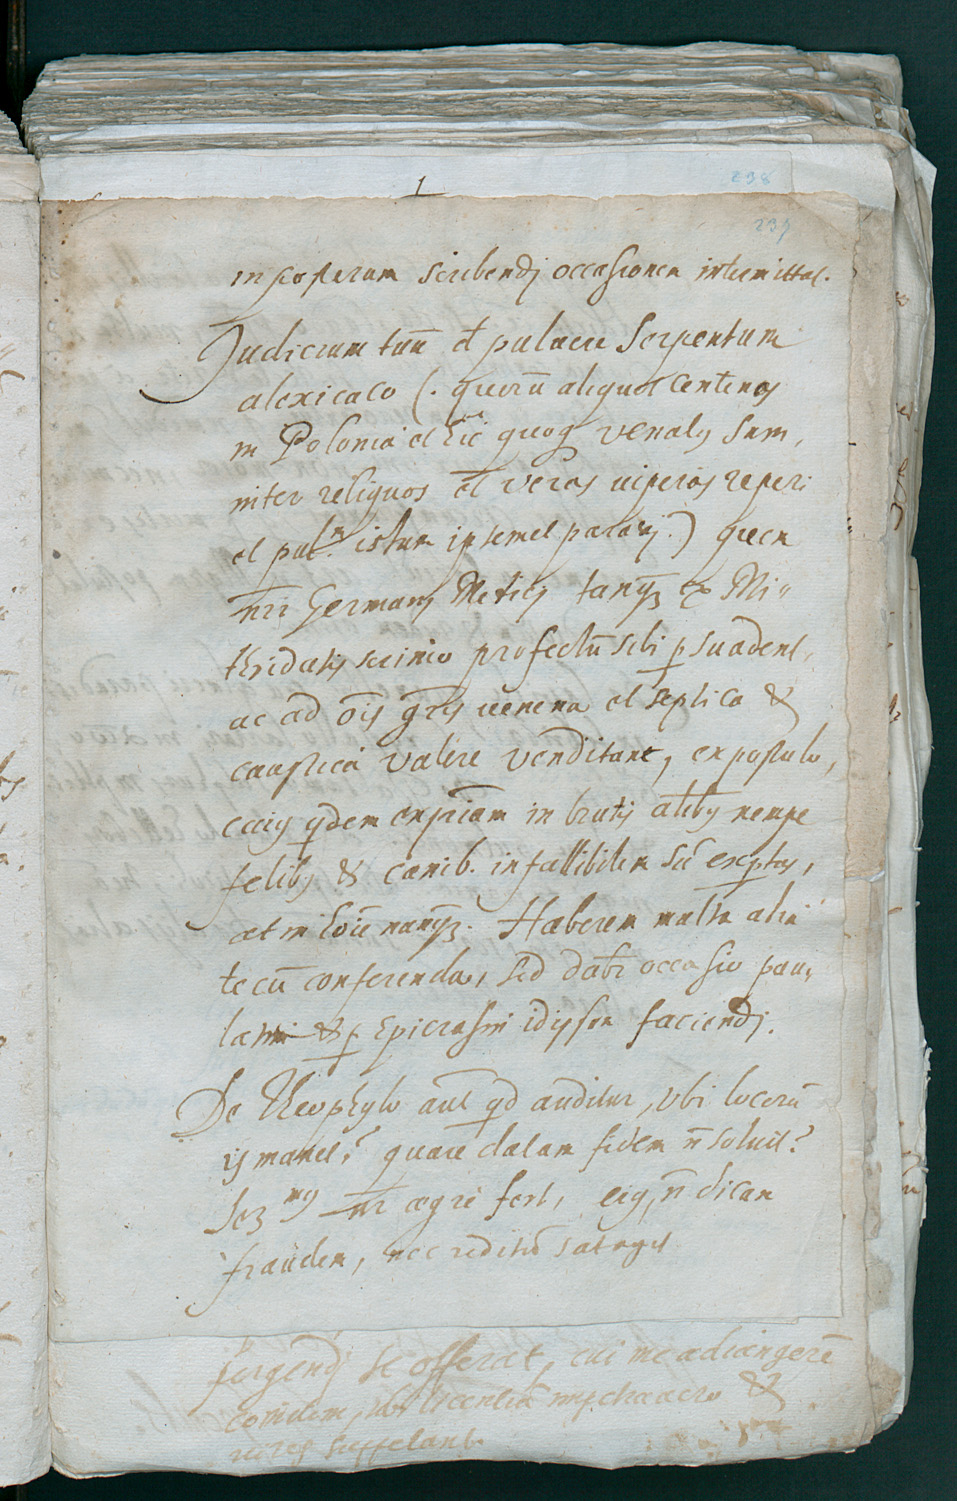 1
298
239
in posterum scribendj occasionem intermittas.
Judicium tuũ et̃ pulvere Serpentum
alexicaco (. quorũ aliquot centenos
in Poloniâ et hic quoq venales sum,
inter reliquos et veras viperas reperi
et pul: istum ipsemet paravj.) quem
nr̃i Germanj Metici tanq̃ ex Mi„
thridatis scrinio profectũ sibi p suadent,
ac ad oĩs gñis venena et septica &
caustica valere venditant, expostulo,
cuiq qdem expiam in brutis atibq nempe
felibq & canib. infallibilem sũ exptus,
at in hoĩe nunq̃. Haberem multa alia
tecũ conferenda, sed dabr̃ occasio pau„
latim & p Epicrasin idipsum faciendj.
De Theophylo aut qd auditur, ubi locorũ
is manet? quare datam fidem ñ soluit?
Ser nr̃ ægre fert, eiq, ñ dicam
fraudem, nec reditũ satagit
surgendj se offerat, cui me adiungere
comitem, ubi
vires suppetant.